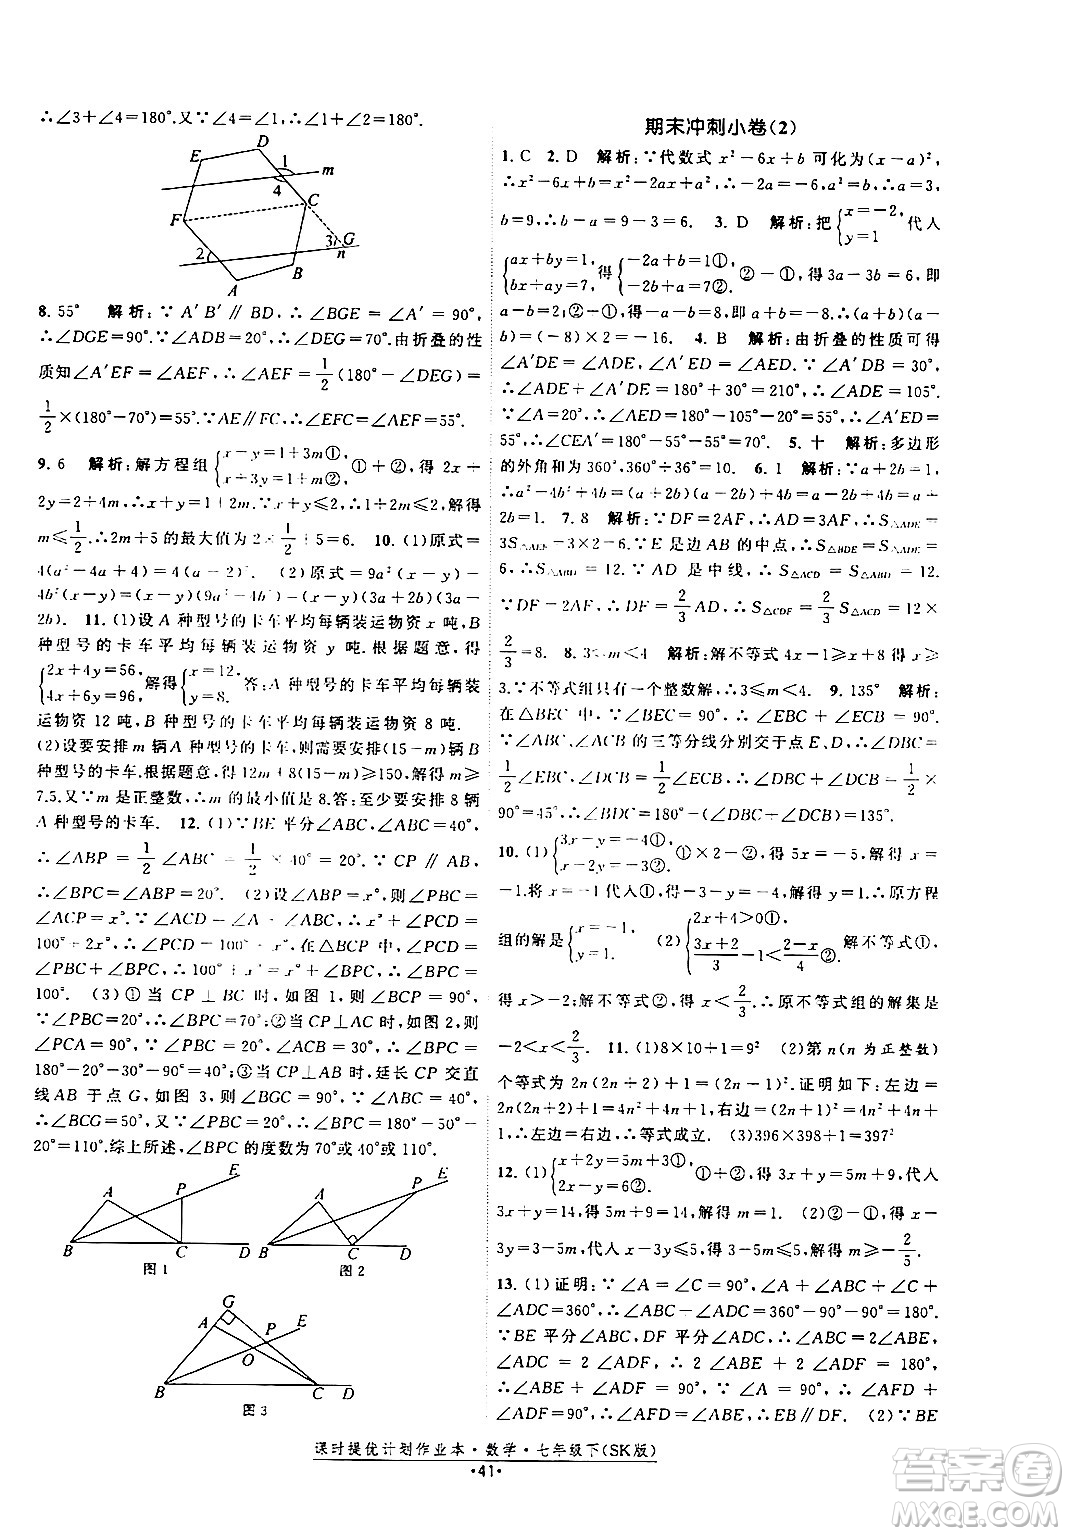 ∴∠3+∠4=180°.又∵∠4=∠2,∴∠1+∠2=180°.
E D 1 m 4 C F 3 G 2 n B A
8. 55° 解析:∵ A′B′∥BD,∴∠BGE=∠A′=90°,
∴∠DGE=90°.∵∠ADB=20°,∴∠DEG=70°.由折叠的性
质知∠A′EF=∠AEF,∴∠AEF=1/2(180°-∠DEG)=
1/2×(180°-70°)=55°.∵AE∥FC,∴∠EFC=∠AEF=55°.
9. 6 解析:解方程组{x-y=1+3m①, x+3y=1+m②, ①+②,得 2x+
2y=2+4m,∴x+y=1+2m.∵x+y≤2,∴1+2m≤2,∴
m≤1/2,∴2m+5的最大值为2×1/2+5=6. 10. (1)原式=
4(a²+4a+4)=4(a+2)². (2)原式=9a²(x-y)-
4b²(x-y)=(x-y)(9a²-4b²)=(x-y)(3a+2b)(3a-
2b). 11. (1)设A种型号的卡车平均每辆装运物资 x 吨,
B 种型号的卡车平均每辆装运物资 y 吨.根据题意,得
{2x+4y=56, 4x+6y=96, 解得{x=12, y=8. 答:A种型号的卡车平均每辆装
运物资 12 吨,B 种型号的卡车平均每辆装运物资 8 吨.
(2)设要安排 m 辆A 种型号的卡车,则要安排(15-m)辆B
种型号的卡车.根据题意,得 12m+8(15-m)≥150,解得 m≥
7.5.又∵m 是正整数,∴m的最小值是8.答:至少要安排 8 辆
A 种型号的卡车. 12. (1)∵BE 平分∠ABC,∠ABC=40°,
∴∠ABP=1/2∠ABC=1/2×40°=20°.∵CP∥AB,
∴∠BPC=∠ABP=20°. (2)设∠BPC=x°,则∠BPC=
∠ACP=x°.∵∠ACD-∠A=∠ABC,∴x°+∠PCD=
100°-2x°,∴∠PCD=100°-x°.在△BCP 中,∠PCD=
∠PBC+∠BPC,∴100°-x°=20°+x°,
100°. (3)①当CP⊥BC时,如图 1,则∠BCP=90°.
∵∠PBC=20°,∴∠BPC=70°;②当CP⊥AC时,如图 2,则
∠PCA=90°,∵∠PBC=20°,∠ACB=30°,∴∠BPC=
180°-20°-30°-90°=40°;③当CP⊥AB 时,延长 CP 交直
线 AB 于点 G,如图 3,则∠BGC=90°.∵∠ABC=40°,
∴∠BCG=50°.∵∠PBC=20°,∴∠BPC=180°-50°-
20°=110°.综上所述,∠BPC 的度数为70°或40°或110°.
A P E B C D
图 1
A P E B C D
图 2
G A P E O B C D
图 3
期末冲刺小卷(2)
1. C 2. D 解析:∵代数式 x²-6x+b 可化为(x-a)²,
∴x²-6x+b=x²-2ax+a²,∴-2a=-6,∴a=3,
b=9,∴b-a=9-3=6. 3. D 解析:把{x=-2, y=1 代入
{ax+by=1, bx+ay=7, 得{-2a+b=1①, -2b+a=7②, ②-①,得 3a-3b=6,即
a-b=2;①+②,得-a-b=8,即 a+b=-8,∴(a+b)(a-
b)=(-8)×2=-16. 4. B 解析:由折叠的性质可得
∠A′DE=∠ADE,∠A′ED=∠AED.∵∠A′DB=30°,
∴∠ADE+∠A′DE=180°+30°=210°,∴∠ADE=105°.
∵∠A=20°,∴∠AED=180°-105°-20°=55°,∴∠A′ED=
55°,∴∠CEA′=180°-55°-55°=70°. 5. 十 解析:多边形
的外角和为360°,360°÷36°=10. 6. 1 解析:∵a+2b=1,
∴a²-4b²+4b=(a+2b)(a-2b)+4b=a-2b+4b=a+
2b=1. 7. 8 解析:∵DF=2AF,∴AD=3AF,∴S△ADE=
3S△AEF=6.∵E 是边 AB 的中点,∴S△BDE=S△ADE=
6,∴S△ABD=12.∵AD 是中线,∴S△ACD=S△ABD=12.
∵DF=2AF=2/3AD,∴S△CDF=2/3S△ACD=12×
2/3=8. 8. 3<m<4 解析:解不等式 4x-1>x+8 得 x≥
3.∵不等式组只有一个整数解,∴3≤m<4. 9. 135° 解析:
在△BEC 中,∵∠BEC=90°,∴∠EBC+∠ECB=90°.
∵∠ABC、∠ACB 的三等分线分别交于点 E、D,∴∠DBC=
1/2∠EBC,∠DCB=1/2∠ECB,∴∠DBC+∠DCB=1/2×
90°=45°,∴∠BDC=180°-(∠DBC+∠DCB)=135°.
10. (1){3x-y=-4①, x-2y=-3②, ①×2-②,得 5x=-5,解得 x=
-1.将 x=-1代入①,得-3-y=-4,解得 y=1.∴原方程
组的解是{x=-1, y=1. (2){2x+4>0①, (3x+2)/3-1<(2-x)/4②, 解不等式①,
得 x>-2;解不等式②,得 x<2/3.∴原不等式组的解集是
-2<x<2/3. 11. (1)8×10+1=9² (2)第 n(n 为正整数)
个等式为 2n(2n+2)+1=(2n+1)².证明如下:左边=
2n(2n+2)+1=4n²+4n+1,右边=(2n+1)²=4n²+4n+
1,∴左边=右边,∴等式成立. (3)396×398+1=397²
12. (1){x+2y=5m+3①, 2x-y=6②. ①+②,得 3x+y=5m+9,代入
3x+y=14,得 5m+9=14,解得 m=1. (2)②-①,得 x-
3y=3-5m,代入 x-3y≤5,得 3-5m≤5,解得 m≥-2/5.
13. (1)证明:∵∠A=∠C=90°,∠A+∠ABC+∠C+
∠ADC=360°,∴∠ABC+∠ADC=360°-90°-90°=180°.
∵BE 平分∠ABC,DF 平分∠ADC,∴∠ABC=2∠ABE,
∠ADC=2∠ADF,∴2∠ABE+2∠ADF=180°,
∴∠ABE+∠ADF=90°,∵∠A=90°,∴∠ABE+
∠AEB=90°,∴∠ADF=∠AEB,∴BE∥DF. (2)∵∠ABE
+∠ADF=90°,∴∠ABE=90°-∠ADF. (2)∵∠BAD
课时提优计划作业本·数学·七年级下(SK版)
·41·
答案圈
MXQE.COM